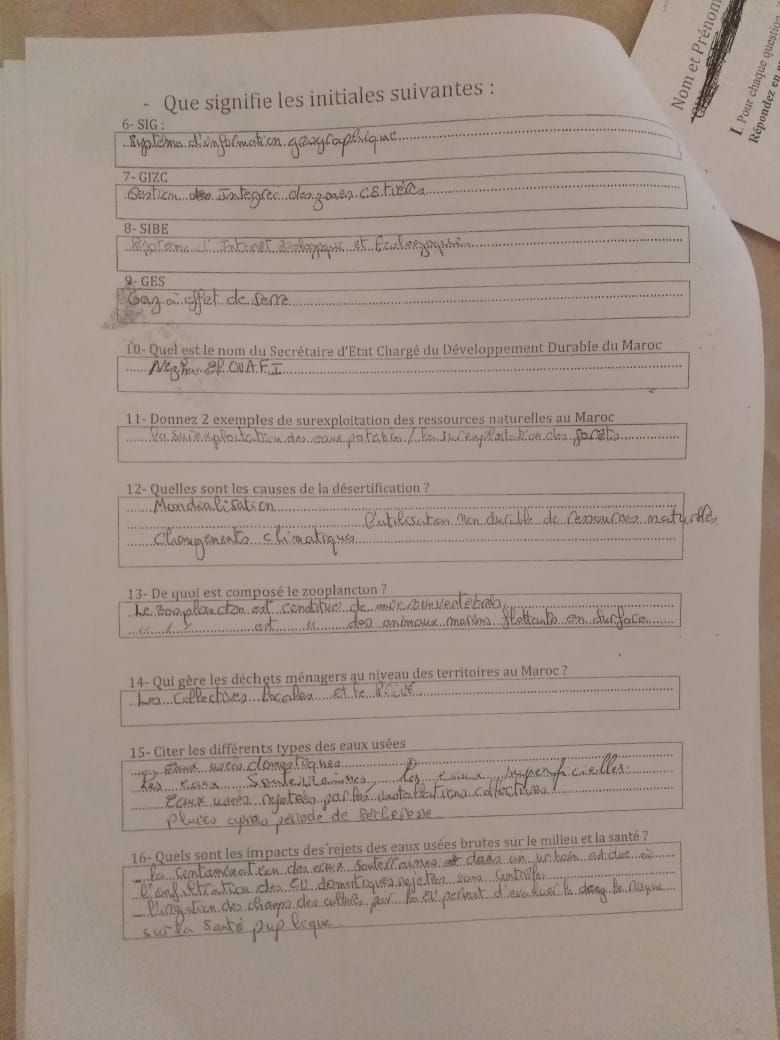 Nom et Prénom
I. Pour chaque question
Répondez en
- Que signifie les initiales suivantes :
6- SIG :
Système d'information géographique
7- GIZC
Gestion Integrec des zones Cotièrea
8- SIBE
d'Interet Biologique et Ecologique
9- GES
Gaz à effet de serre
10- Quel est le nom du Secrétaire d'Etat Chargé du Développement Durable du Maroc
Nezha EL OUAFI
11- Donnez 2 exemples de surexploitation des ressources naturelles au Maroc
La surexploitation des eaux potables / la surexploitation des forêts
12- Quelles sont les causes de la désertification ?
Mondialisation
l'utilisation non durable de ressources naturelles
Changements climatiques
13- De quoi est composé le zooplancton ?
Le zooplancton est constitué de microinvertébrés
" " est " des animaux marins flottants en surface
14- Qui gère les déchets ménagers au niveau des territoires au Maroc ?
Les Collectives locales et le privé
15- Citer les différents types des eaux usées
Eaux usées domestiques
Les eaux Souterraines, les eaux superficielles
Eaux usées rejetées par les installations collectives
pluies après période de sécheresse
16- Quels sont les impacts des rejets des eaux usées brutes sur le milieu et la santé ?
La contamination des eaux souterraines dans un urbain est due à
l'infiltration des EU domestiques rejetés sans contrôle
l'irrigation des champs des cultures par la EU permet d'évaluer le risque
sur la santé puplique.